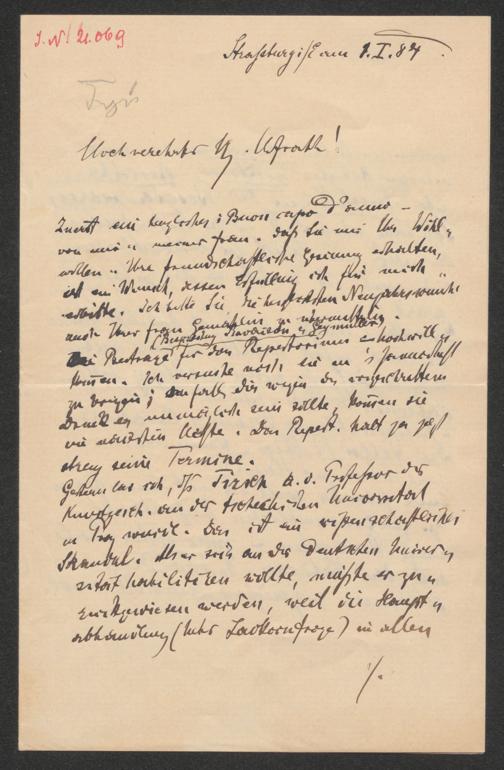 J.N. 21.069
Straßburg i/E am 1.I.84.
Hochverehrter H. Hofrath!
Zuerst ein herzliches: Buon capo d'anno –
von mir u meiner Frau. Daß Sie mir Ihr Wohl-
wollen u Ihre freundschaftliche Gesinnung erhalten,
ist ein Wunsch, dessen Erfüllung ich für mich
erbitte. Ich bitte Sie die herzlichsten Neujahrswünsche
auch Ihrer Frau Gemahlin zu übermitteln.
Beiträge für das Repertorium hochwillkommen.
Ich versuche noch sie in's Jännerheft
zu bringen; falls dies wegen des vorgeschrittenen
Druckes unmöglich sein sollte, kommen sie
im nächsten Hefte. Das Repert. hält ja jetzt
streng seine Termine.
Gestern las ich, daß Tirsch a.o. Professor der
Kunstgesch. an der tschechischen Universität
in Prag wurde. Das ist ein wissenschaftlicher
Skandal. Als er sich an der Deutschen Univer-
sität habilitiren wollte, mußte er zu-
rückgewiesen werden, weil die Haupt-
abhandlung (Laokoonfrage) in allen
./.